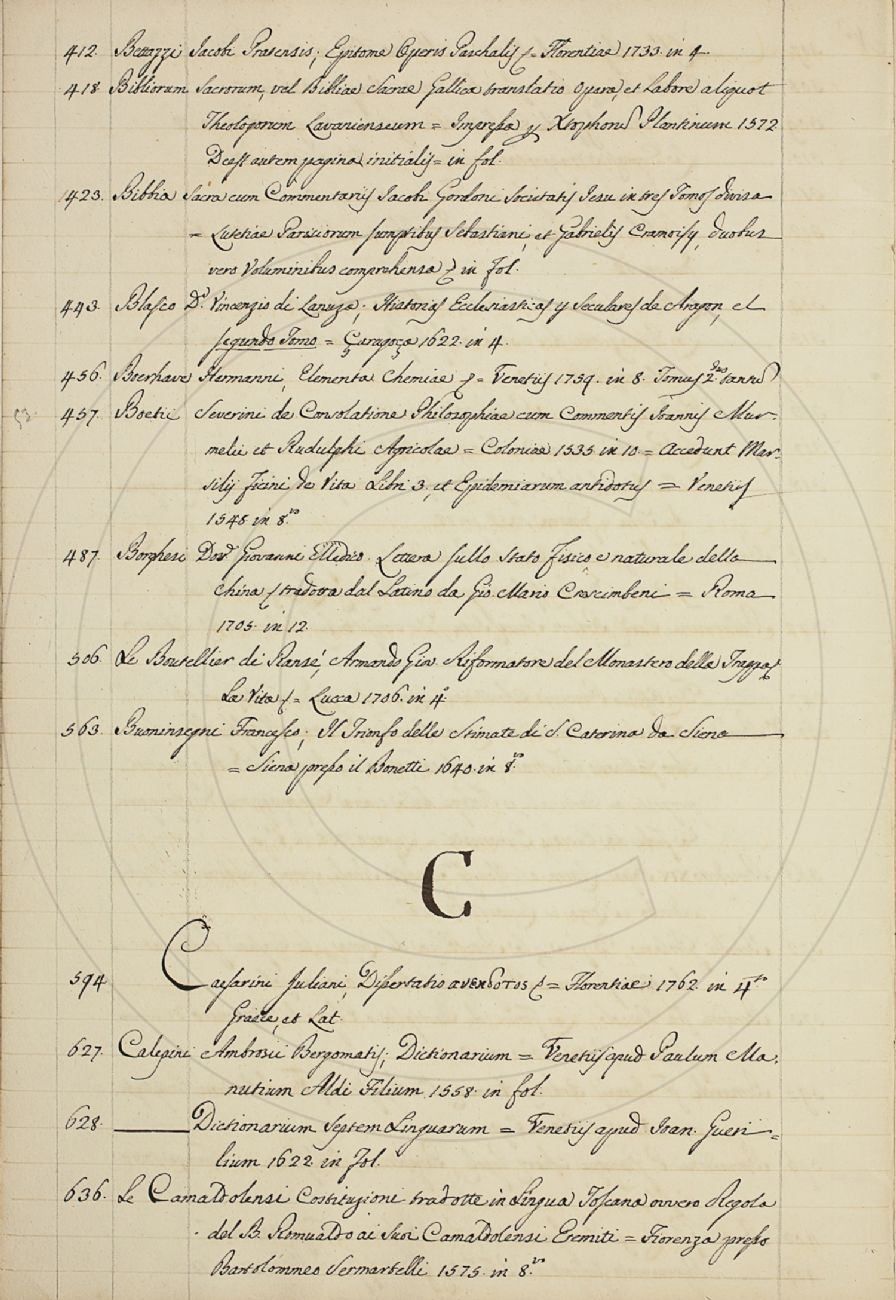 412. Betazzi Jacobi Pratensis; Epitome Operis Paschalis &= Florentiae 1733. in 4.
418 Bibliorum Sacrorum, vel Bibliae Sacrae Gallica translatio opera, et Labore aliquot
Theologorum Lovaniensium = Impressa Xtophorus Plantinum 1572
Deest autem pagina initialis = in fol.
423. Bibbia Sacra cum Commentariis Jacobi Gordoni Societatis Iesu in tres Tomos divisa
= Lutetiae Parisiorum sumptibus Sebastiani, et Gabrielis Cramoisy, duobus
vero Voluminibus comprehensa & in fol.
443. Blasco Dr. Vincenzio di Lanuza; Historias Ecclesiasticas y Seculares de Aragon, el
segundo Tomo = Çaragoça 1622. in 4.
456. Boerhave Hermanni, Elementa Chemiae &= Venetiis 1759. in 8. Tomus 2.dus tantu
457. Boetii Severini de Consolatione Philosophiae cum Commentis Joannis Mur-
melii et Rudulphi Agricolae = Coloniae 1535 in 10 = accedunt Mar-
silij Ficini de Vita Libri 3, et Epidemiarum antidotus = Venetiis
1548 in 8.vo
487. Borghesi Dor Giovanni Medico. Lettera sullo Stato fisico e naturale della
China & tradotta dal Latino da Gio. Mario Crescimbeni = Roma
1705. in 12.
506. Le Boutellier di Ransé, Armando Gio. Riformatore del Monastero della Trappa
La Vita &= Lucca 1706. in 4.o
563. Buoninsegni Francesco; Il Trionfo delle Stimate di S. Caterina da Siena
= Siena presso il Bonetti 1640. in 8.vo
C
594 Caesarini Juliani, Dissertatio ανεκδοτος &= Florentiae 1762. in 4.to
Graece, et Lat.
627. Calepini Ambrosii Bergomatis; Dictionarium = Venetiis apud Paulum Ma-
nutium Aldi Filium 1558. in fol.
628. ———— Dictionarium Septem Linguarum = Venetiis apud Joan. Gueri-
lium 1622. in fol.
636. Le Camaldolensi Costituzioni tradotte in Lingua Toscana ovvero Regola
del B. Romualdo ai Suoi Camaldolensi Eremiti = Fiorenza presso
Bartolommeo Sermartelli 1575. in 8.vo